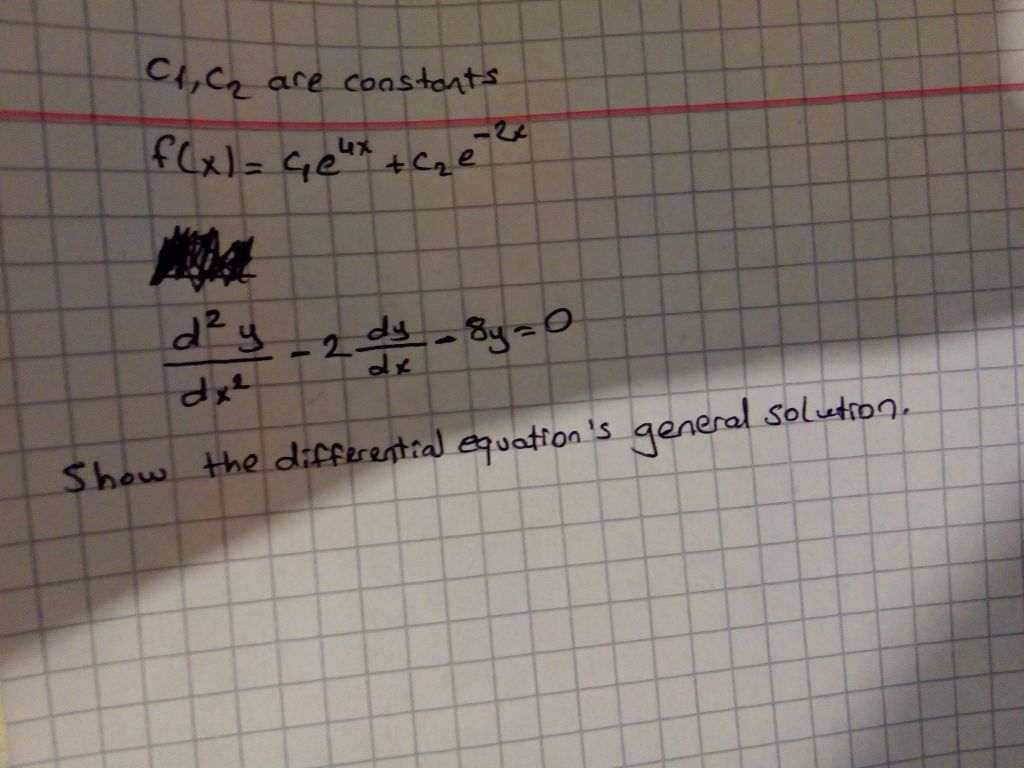 C1, C2 are constants
f(x) = C1e^4x + C2e^-2x
d²y/dx² - 2 dy/dx - 8y = 0
Show the differential equation's general solution.